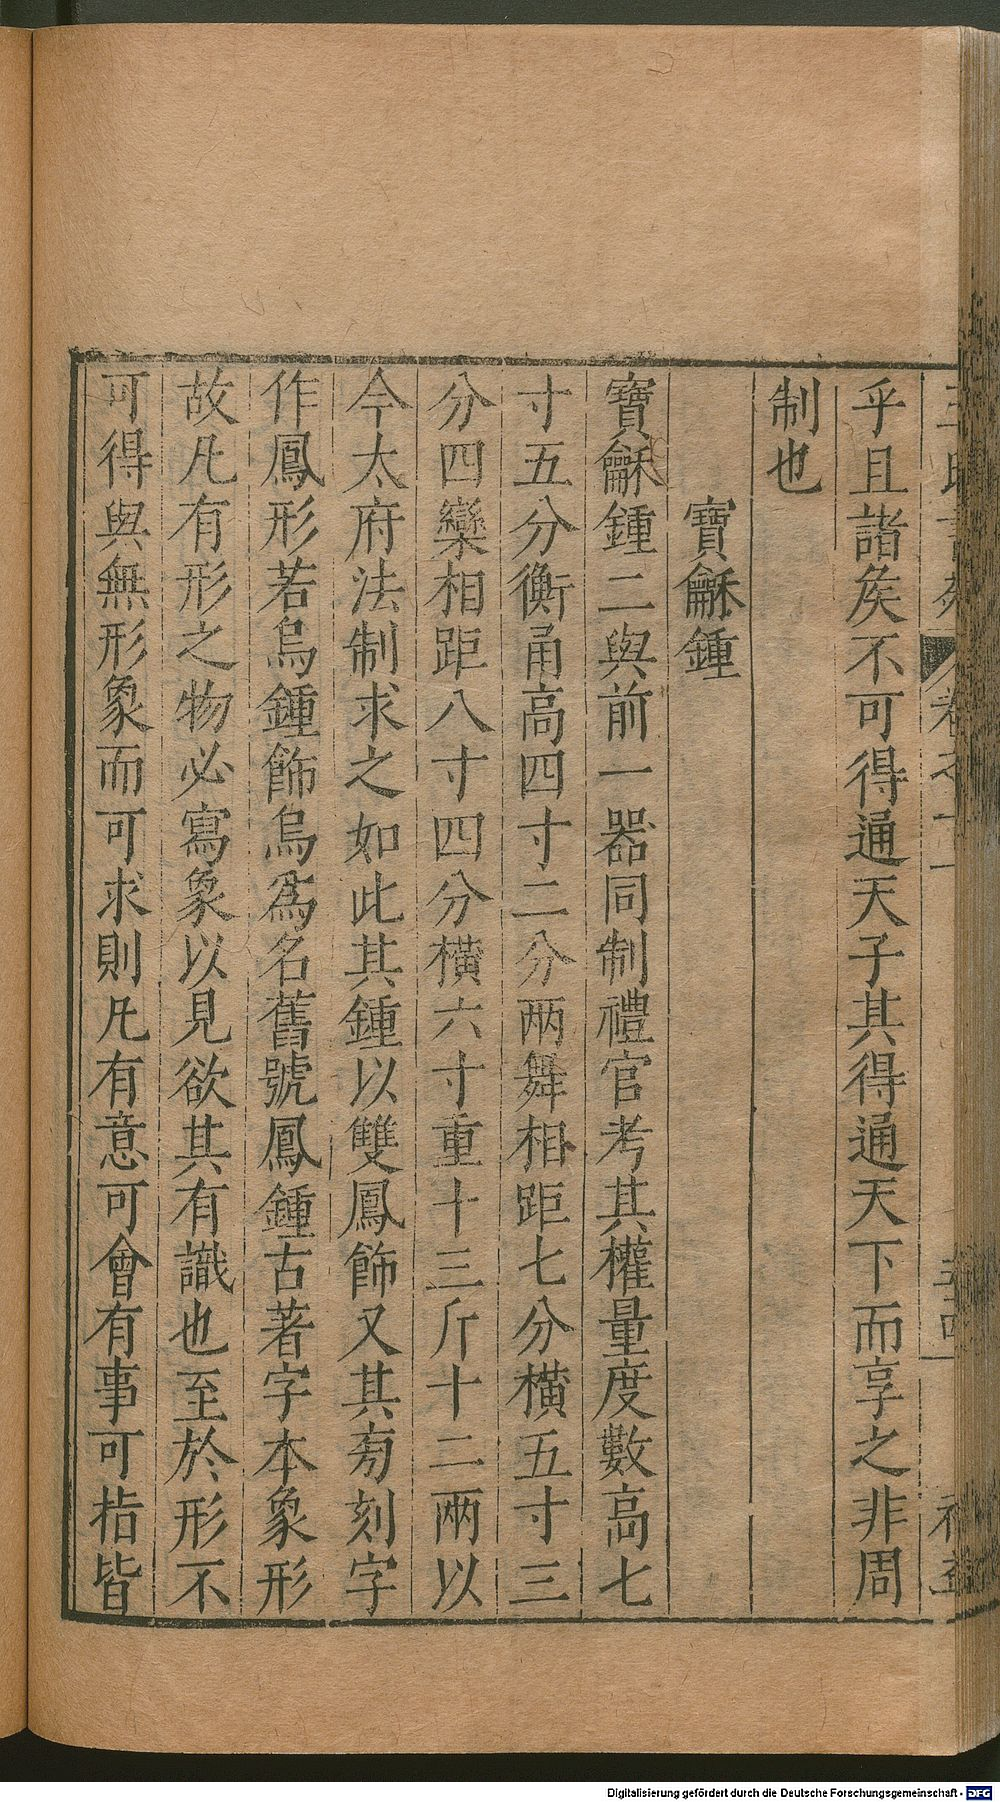 乎且諸矦不可得通天子其得通天下而享之非周
制也
寶龢鍾
寶龢鍾二與前一器同制禮官考其權量度數高七
寸五分衡甬高四寸二分两舞相距七分橫五寸三
分四欒相距八寸四分橫六寸重十三斤十二兩以
今太府法制求之如此其鍾以雙鳳飾又其旁刻字
作鳳形若烏鍾飾烏爲名舊號鳳鍾古著字本象形
故凡有形之物必寫象以見欲其有識也至於形不
可得與無形象而可求則凡有意可會有事可指皆
Digitalisierung gefördert durch die Deutsche Forschungsgemeinschaft - DFG